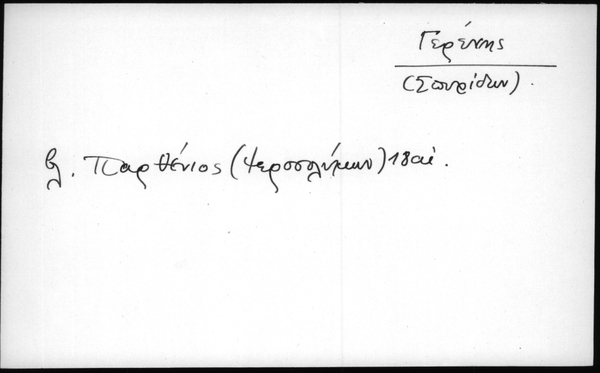 Γερένης
(Σπυρίδων).
βλ. Παρθένιος (Ἱεροσολύμων) 18 αἰ.